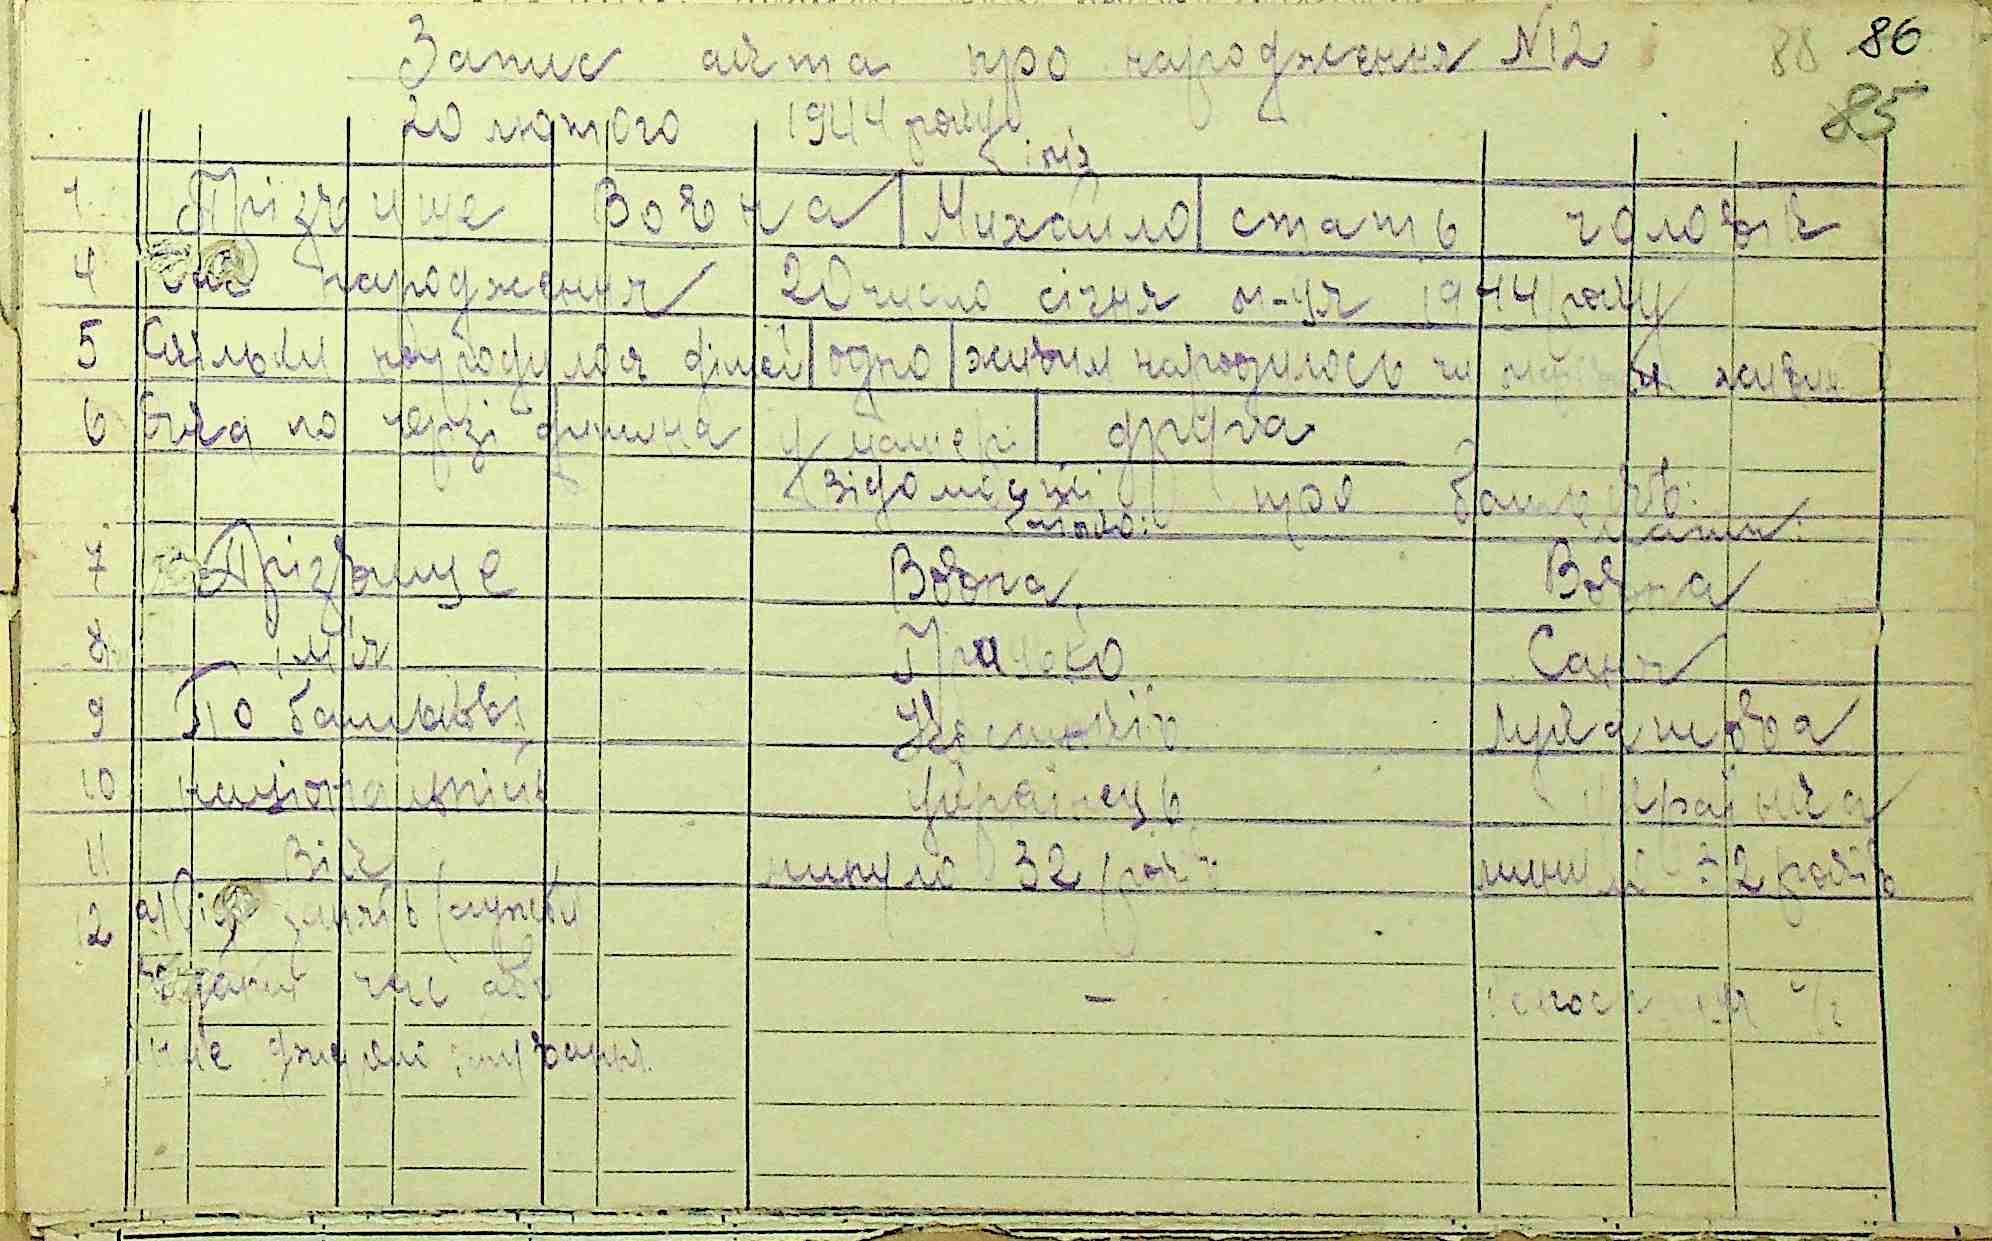 Запис акта про народження №12 88 86
20 лютого 1944 року 85
імя
1 Прізвище Вовна Михайло стать чоловік
4 Час народження 20 число січня м-ця 1944 року
5 Скільки народилося дітей одно живим народилось чи живим
6 Яка по черзі дитина у матері друга
Відомості про батьків:
батько: мати:
7 Прізвище Вовна Вовна
8 імя Грицько Саня
9 По батькові Лукашова
10 національність українець українка
11 Вік минуло 32 рок. минуло 32 років
12 а) Рід занять (служби
даний час або
інше джерело існування. -